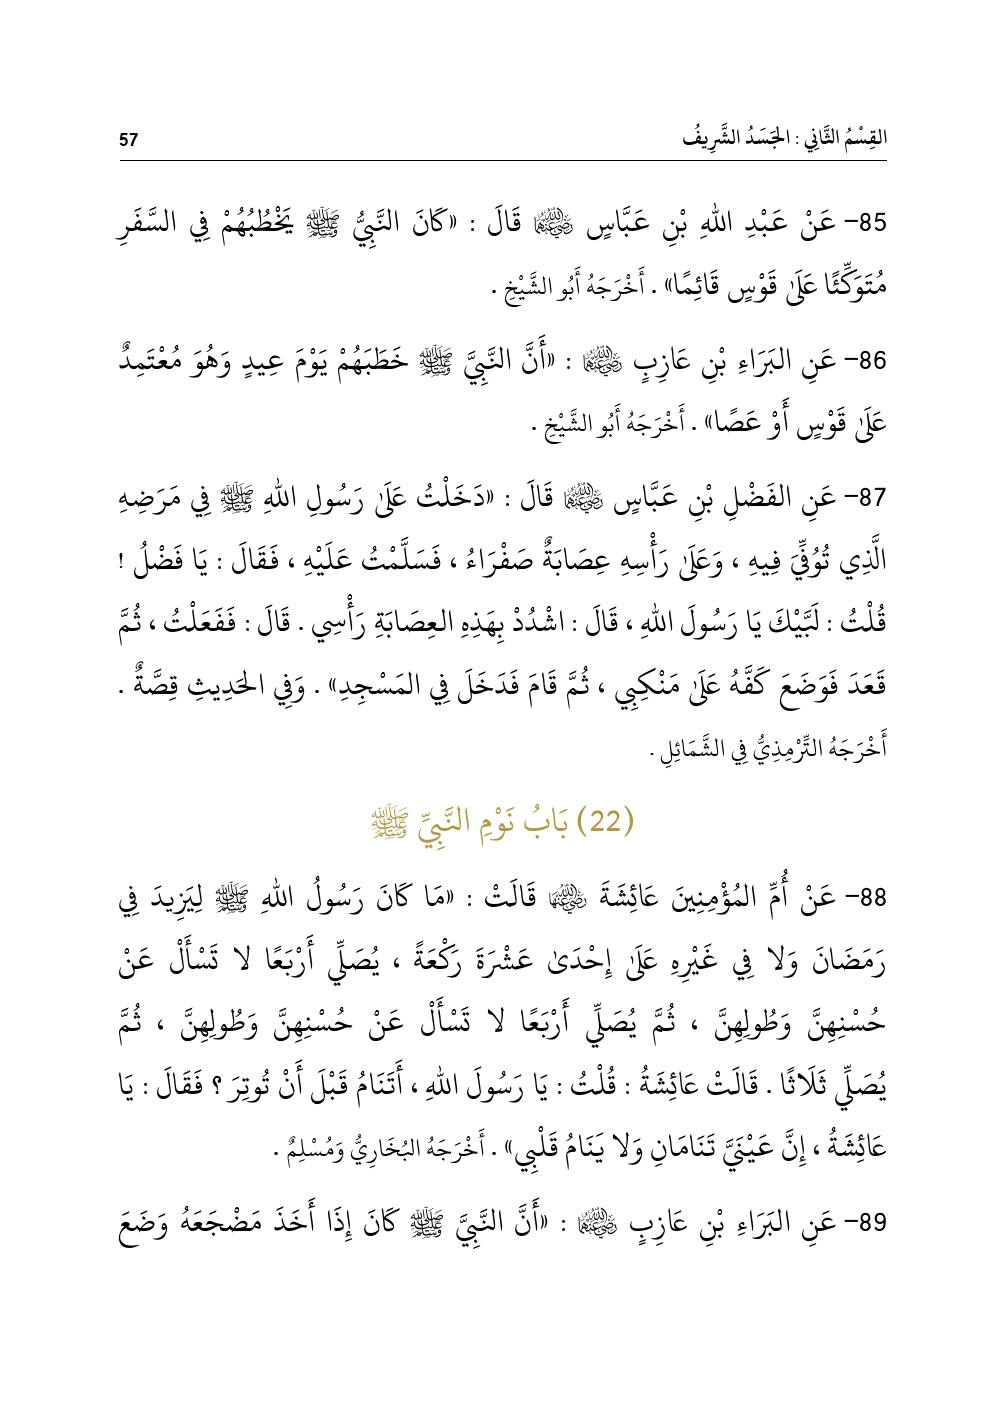 القِسْمُ الثَّانِي : الجَسَدُ الشَّرِيفُ 57
85- عَنْ عَبْدِ اللهِ بْنِ عَبَّاسٍ رضي الله عنهما قَالَ : «كَانَ النَّبِيُّ ﷺ يَخْطُبُهُمْ فِي السَّفَرِ
مُتَوَكِّئًا عَلَىٰ قَوْسٍ قَائِمًا» . أَخْرَجَهُ أَبُو الشَّيْخِ .
86- عَنِ البَرَاءِ بْنِ عَازِبٍ رضي الله عنهما : «أَنَّ النَّبِيَّ ﷺ خَطَبَهُمْ يَوْمَ عِيدٍ وَهُوَ مُعْتَمِدٌ
عَلَىٰ قَوْسٍ أَوْ عَصًا» . أَخْرَجَهُ أَبُو الشَّيْخِ .
87- عَنِ الفَضْلِ بْنِ عَبَّاسٍ رضي الله عنهما قَالَ : «دَخَلْتُ عَلَىٰ رَسُولِ اللهِ ﷺ فِي مَرَضِهِ
الَّذِي تُوُفِّيَ فِيهِ ، وَعَلَىٰ رَأْسِهِ عِصَابَةٌ صَفْرَاءُ ، فَسَلَّمْتُ عَلَيْهِ ، فَقَالَ : يَا فَضْلُ !
قُلْتُ : لَبَّيْكَ يَا رَسُولَ اللهِ ، قَالَ : اشْدُدْ بِهَذِهِ العِصَابَةِ رَأْسِي . قَالَ : فَفَعَلْتُ ، ثُمَّ
قَعَدَ فَوَضَعَ كَفَّهُ عَلَىٰ مَنْكِبِي ، ثُمَّ قَامَ فَدَخَلَ فِي المَسْجِدِ» . وَفِي الحَدِيثِ قِصَّةٌ .
أَخْرَجَهُ التِّرْمِذِيُّ فِي الشَّمَائِلِ .
(22) بَابُ نَوْمِ النَّبِيِّ ﷺ
88- عَنْ أُمِّ المُؤْمِنِينَ عَائِشَةَ رضي الله عنها قَالَتْ : «مَا كَانَ رَسُولُ اللهِ ﷺ لِيَزِيدَ فِي
رَمَضَانَ وَلا فِي غَيْرِهِ عَلَىٰ إِحْدَىٰ عَشْرَةَ رَكْعَةً ، يُصَلِّي أَرْبَعًا لا تَسْأَلْ عَنْ
حُسْنِهِنَّ وَطُولِهِنَّ ، ثُمَّ يُصَلِّي أَرْبَعًا لا تَسْأَلْ عَنْ حُسْنِهِنَّ وَطُولِهِنَّ ، ثُمَّ
يُصَلِّي ثَلَاثًا . قَالَتْ عَائِشَةُ : قُلْتُ : يَا رَسُولَ اللهِ ، أَتَنَامُ قَبْلَ أَنْ تُوتِرَ ؟ فَقَالَ : يَا
عَائِشَةُ ، إِنَّ عَيْنَيَّ تَنَامَانِ وَلا يَنَامُ قَلْبِي» . أَخْرَجَهُ البُخَارِيُّ وَمُسْلِمٌ .
89- عَنِ البَرَاءِ بْنِ عَازِبٍ رضي الله عنهما : «أَنَّ النَّبِيَّ ﷺ كَانَ إِذَا أَخَذَ مَضْجَعَهُ وَضَعَ